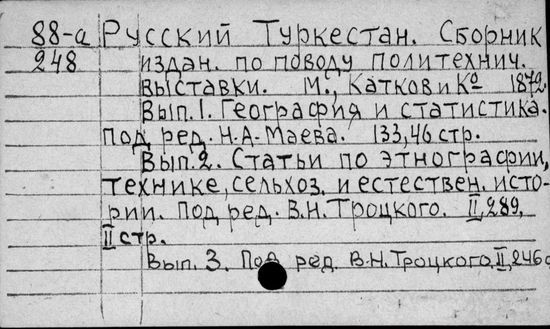 88-а Русский Туркестан. Сборник
248 издан. по поводу политехнич.
выставки. М., Катков и Кº 1872.
Вып. 1. География и статистика.
под ред. Н.А. Маева. 133,46 стр.
Вып. 2. Статьи по этнографии,
технике, сельхоз. и естествен. исто-
рии. Под ред. В.Н. Троцкого. II, 289,
II стр.
Вып. 3. Под ред. В.Н. Троцкого. II, 246 с